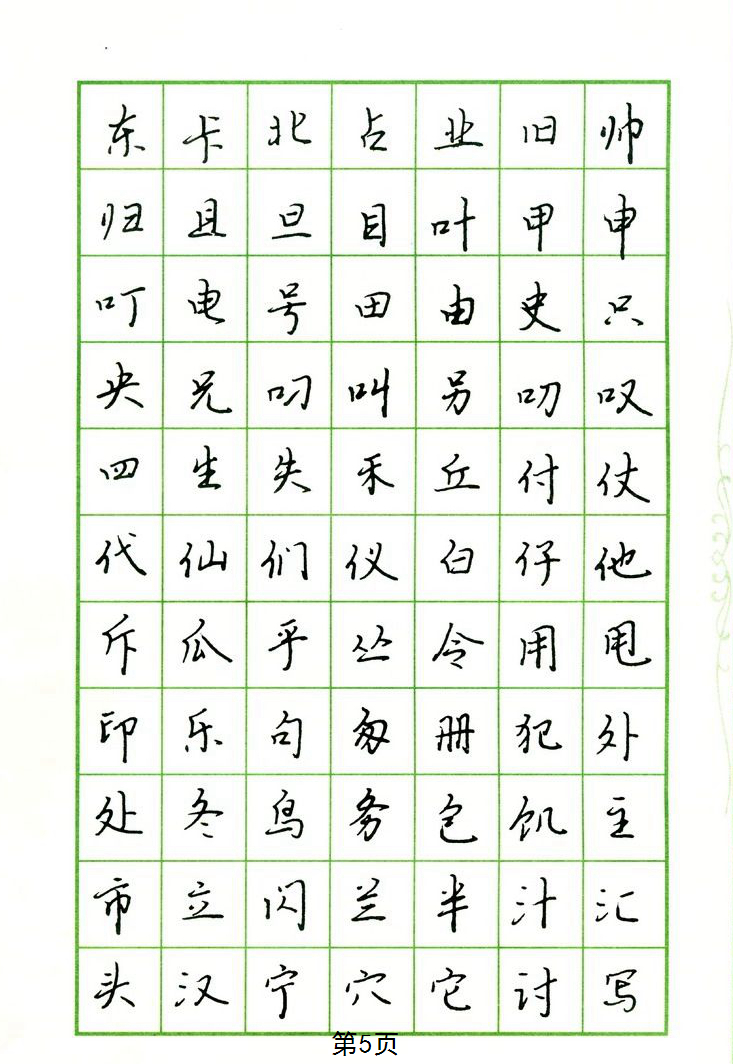 东卡北占业旧帅
归且旦目叶甲申
叮电号田由史只
央兄叼叫另叨叹
四生失禾丘付仗
代仙们仪白仔他
斥瓜乎丛令用甩
印乐句匆册犯外
处冬鸟务包饥主
市立闪兰半汁汇
头汉宁穴它讨写
第5页